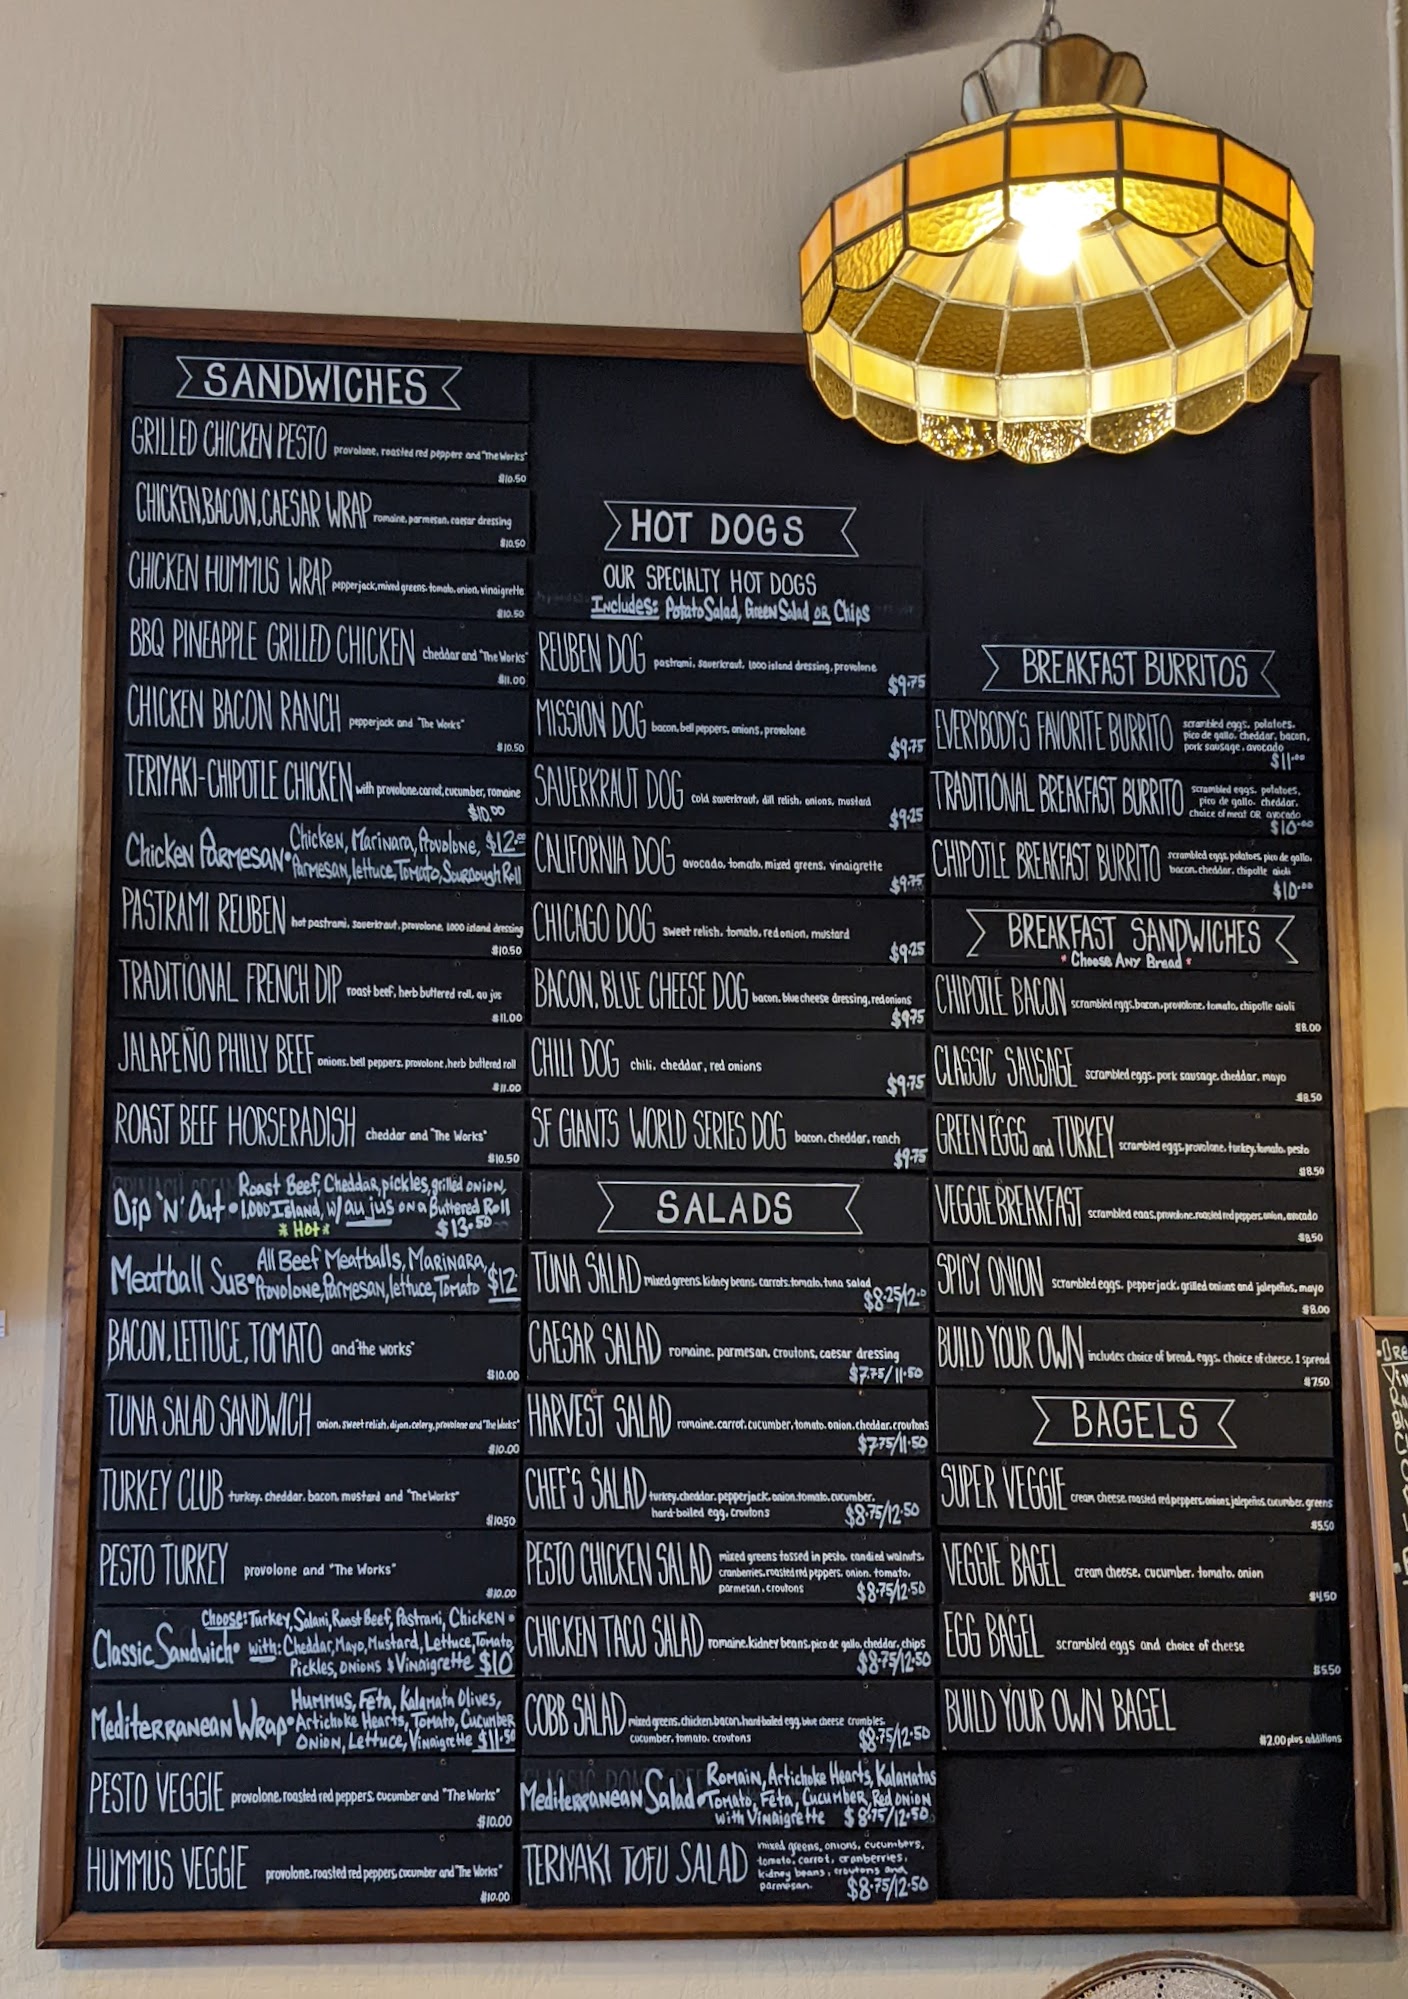 SANDWICHES
GRILLED CHICKEN PESTO provolone, roasted red peppers and "The Works"
$10.50
CHICKEN, BACON, CAESAR WRAP romaine, parmesan, caesar dressing
$10.50
CHICKEN HUMMUS WRAP pepperjack, mixed greens, tomato, onion, vinaigrette
$10.50
BBQ PINEAPPLE GRILLED CHICKEN cheddar and "The Works"
$11.00
CHICKEN BACON RANCH pepperjack and "The Works"
$10.50
TERIYAKI-CHIPOTLE CHICKEN with provolone, carrot, cucumber, romaine
$10.00
Chicken Parmesan • Chicken, Marinara, Provolone, $12.00
Parmesan, lettuce, Tomato, Sourdough Roll
PASTRAMI REUBEN hot pastrami, sauerkraut, provolone, 1000 island dressing
$10.50
TRADITIONAL FRENCH DIP roast beef, herb buttered roll, au jus
$11.00
JALAPEÑO PHILLY BEEF onions, bell peppers, provolone, herb buttered roll
$11.00
ROAST BEEF HORSERADISH cheddar and "The Works"
$10.50
Dip 'N' Out • Roast Beef, Cheddar, pickles, grilled onion,
1,000 Island, w/ au jus on a Buttered Roll
*Hot* $13.50
Meatball Sub • All Beef Meatballs, Marinara,
Provolone, Parmesan, lettuce, Tomato $12
BACON, LETTUCE, TOMATO and "the works"
$10.00
TUNA SALAD SANDWICH onion, sweet relish, dijon, celery, provolone and "The Works"
$10.00
TURKEY CLUB turkey, cheddar, bacon, mustard and "The Works"
$10.50
PESTO TURKEY provolone and "The Works"
$10.00
Choose: Turkey, Salami, Roast Beef, Pastrami, Chicken •
Classic Sandwich • with: Cheddar, Mayo, Mustard, Lettuce, Tomato,
Pickles, Onions & Vinaigrette $10
Mediterranean Wrap • Hummus, Feta, Kalamata Olives,
Artichoke Hearts, Tomato, Cucumber
Onion, Lettuce, Vinaigrette $11.50
PESTO VEGGIE provolone, roasted red peppers, cucumber and "The Works"
$10.00
HUMMUS VEGGIE provolone, roasted red peppers, cucumber and "The Works"
$10.00
HOT DOGS
OUR SPECIALTY HOT DOGS
Includes: Potato Salad, Green Salad OR Chips
REUBEN DOG pastrami, sauerkraut, 1000 island dressing, provolone
$9.75
MISSION DOG bacon, bell peppers, onions, provolone
$9.75
SAUERKRAUT DOG cold sauerkraut, dill relish, onions, mustard
$9.25
CALIFORNIA DOG avocado, tomato, mixed greens, vinaigrette
$9.75
CHICAGO DOG sweet relish, tomato, red onion, mustard
$9.25
BACON, BLUE CHEESE DOG bacon, blue cheese dressing, red onions
$9.75
CHILI DOG chili, cheddar, red onions
$9.75
SF GIANTS WORLD SERIES DOG bacon, cheddar, ranch
$9.75
SALADS
TUNA SALAD mixed greens, kidney beans, carrots, tomato, tuna salad
$8.25/12.0
CAESAR SALAD romaine, parmesan, croutons, caesar dressing
$7.75/11.50
HARVEST SALAD romaine, carrot, cucumber, tomato, onion, cheddar, croutons
$7.75/11.50
CHEF'S SALAD turkey, cheddar, pepperjack, onion, tomato, cucumber,
hard-boiled egg, croutons $8.75/12.50
PESTO CHICKEN SALAD mixed greens tossed in pesto, candied walnuts,
cranberries, roasted red peppers, onion, tomato,
parmesan, croutons $8.75/12.50
CHICKEN TACO SALAD romaine, kidney beans, pico de gallo, cheddar, chips
$8.75/12.50
COBB SALAD mixed greens, chicken, bacon, hard boiled egg, blue cheese crumbles,
cucumber, tomato, croutons $8.75/12.50
Mediterranean Salad • Romain, Artichoke Hearts, Kalamatas
Tomato, Feta, Cucumber, Red Onion
with Vinaigrette $8.75/12.50
TERIYAKI TOFU SALAD mixed greens, onions, cucumbers,
tomato, carrot, cranberries,
kidney beans, croutons and
parmesan. $8.75/12.50
BREAKFAST BURRITOS
EVERYBODY'S FAVORITE BURRITO scrambled eggs, potatoes,
pico de gallo, cheddar, bacon,
pork sausage, avocado
$11.00
TRADITIONAL BREAKFAST BURRITO scrambled eggs, potatoes,
pico de gallo, cheddar,
choice of meat OR avocado
$10.00
CHIPOTLE BREAKFAST BURRITO scrambled eggs, potatoes, pico de gallo,
bacon, cheddar, chipotle aioli
$10.00
BREAKFAST SANDWICHES
* Choose Any Bread *
CHIPOTLE BACON scrambled eggs, bacon, provolone, tomato, chipotle aioli
$8.00
CLASSIC SAUSAGE scrambled eggs, pork sausage, cheddar, mayo
$8.50
GREEN EGGS and TURKEY scrambled eggs, provolone, turkey, tomato, pesto
$8.50
VEGGIE BREAKFAST scrambled eggs, provolone, roasted red peppers, onion, avocado
$8.50
SPICY ONION scrambled eggs, pepperjack, grilled onions and jalepeños, mayo
$8.00
BUILD YOUR OWN includes choice of bread, eggs, choice of cheese, 1 spread
$7.50
BAGELS
SUPER VEGGIE cream cheese, roasted red peppers, onions, jalepeños, cucumber, greens
$5.50
VEGGIE BAGEL cream cheese, cucumber, tomato, onion
$4.50
EGG BAGEL scrambled eggs and choice of cheese
$5.50
BUILD YOUR OWN BAGEL
$2.00 plus additions